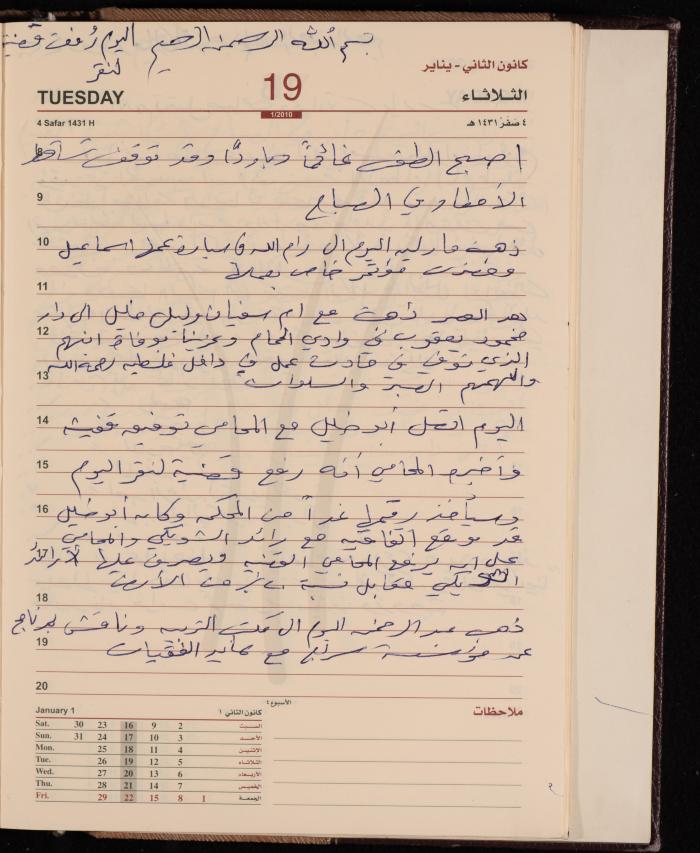 بسم الله الرحمن الرحيم اليوم رُفعت قضية
لنقر
كانون الثاني - يناير
TUESDAY 19 الثلاثاء
4 Safar 1431 H 1/2010 ٤ صفر ١٤٣١ هـ
8 اصبح الطقس غائماً وبارداً وقد توقف تساقط
9 الأمطار في الصباح
10 ذهبت اليوم الى رام الله في سيارة عمها اسماعيل
مؤتمر خاص بعملا
11
بعد العصر ذهبت مع ام سفيان خليل الى دار
12 محمود يعقوب في وادي الحمام وعزينا بوفاة ابنهم
الذي توفي في حادث عمل في داخل فلسطين رحمه الله
13 والهمهم الصبر والسلوان
14 اليوم اتصل أبو خليل مع المحامي توفيق
15 وأخبره المحامي أنه رفع قضية لنقر اليوم
16 وسيأخذ رقمها غداً من المحكمة وكان أبو خليل
قد وقع اتفاقيه مع رائد الشويكي والمحامي
17 على ان يرفع المحامي القضيه ويصرف عليها رائد
الشويكي مقابل نسبة من الأرض
18
ذهب عبد الرحمن اليوم الى مكتب التربيه وناقش برنامج
19 عن مؤسسة مع
20
January 1 كانون الثاني ١
الأسبوع ٤
ملاحظات
Sat. 30 23 16 9 2 السبت
Sun. 31 24 17 10 3 الأحد
Mon. 25 18 11 4 الاثنين
Tue. 26 19 12 5 الثلاثاء
Wed. 27 20 13 6 الأربعاء
Thu. 28 21 14 7 الخميس
Fri. 29 22 15 8 1 الجمعة